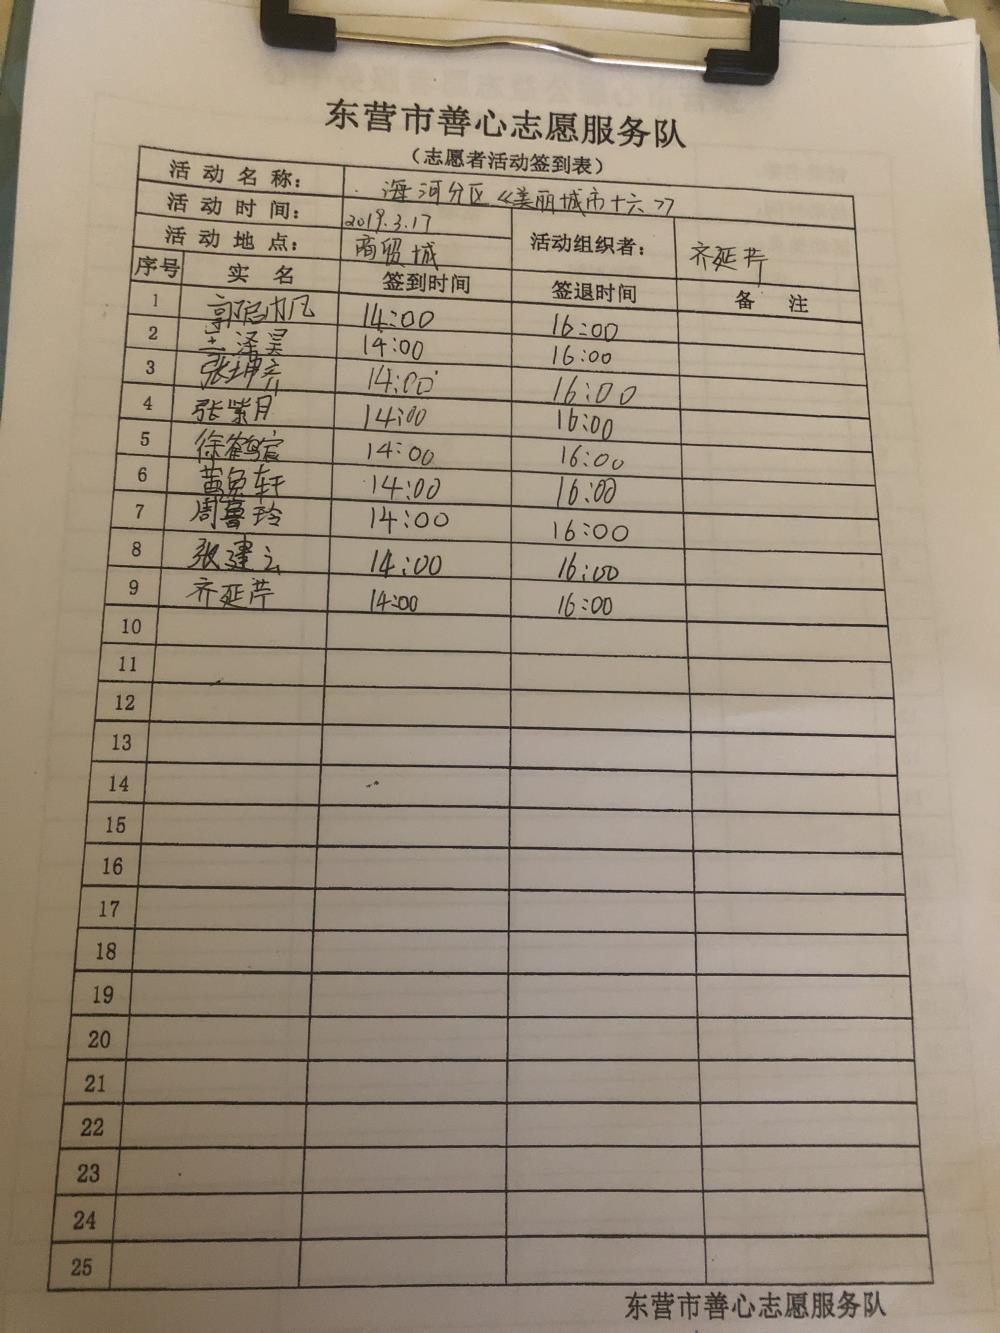 东营市善心志愿服务队
（志愿者活动签到表）
活动名称： 海河分区《美丽城市十六》
活动时间： 2019.3.17 活动组织者： 齐延芹
活动地点： 商贸城
序号 实名 签到时间 签退时间 备注
1 14:00 16:00
2 王泽昊 14:00 16:00
3 张坤 14:00 16:00
4 张紫月 14:00 16:00
5 徐鹤宸 14:00 16:00
6 轩 14:00 16:00
7 周鲁玲 14:00 16:00
8 张建云 14:00 16:00
9 齐延芹 14:00 16:00
10
11
12
13
14
15
16
17
18
19
20
21
22
23
24
25
东营市善心志愿服务队